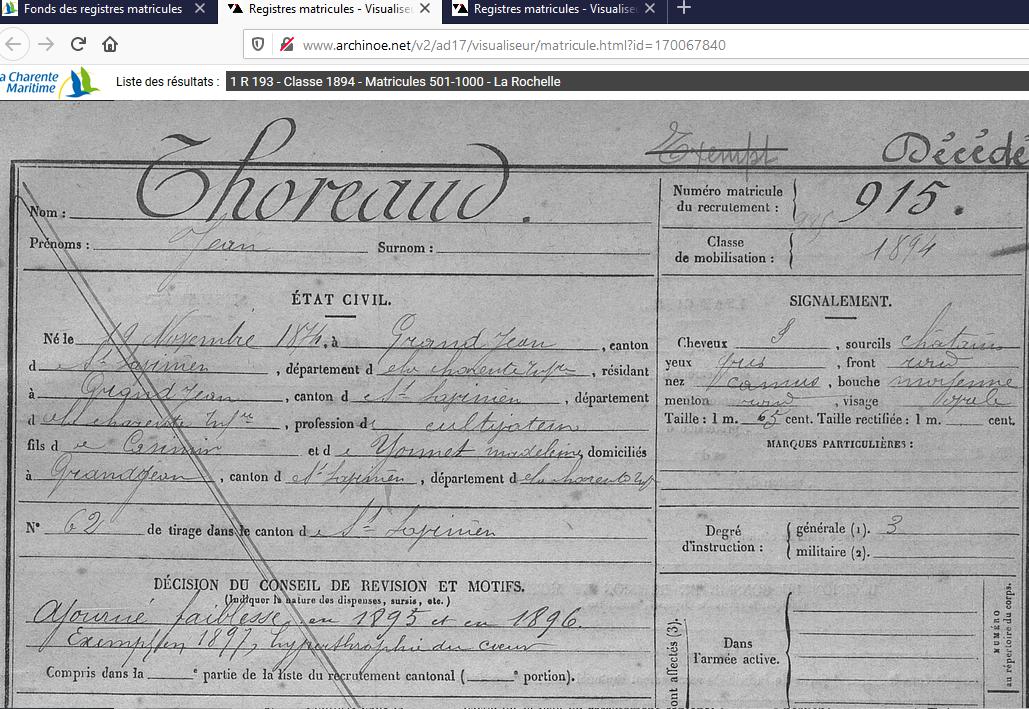 Fonds des registres matricules
Registres matricules - Visualiseu
Registres matricules - Visualise
www.archinoe.net/v2/ad17/visualiseur/matricule.html?id=170067840
a Charente
Maritime
Liste des résultats : 1 R 193 - Classe 1894 - Matricules 501-1000 - La Rochelle
Exempt Décédé
Nom : Thoreaud.
Prénoms : Jean Surnom :
Numéro matricule
du recrutement : 915.
Classe
de mobilisation : 1894
ÉTAT CIVIL.
Né le 12 Novembre 1874, à Grand Jean, canton
d e St Savinien, département d e la charente Infre, résidant
à Grand Jean, canton d e St Savinien, département
d e la charente Infre, profession d cultivateur
fils d e Casimir et d e Yonnet madeleine domiciliés
à Grandjean, canton d e St Savinien, département d e la charente Inf
N° 62 de tirage dans le canton d e St Savinien
DÉCISION DU CONSEIL DE REVISION ET MOTIFS.
(Indiquer la nature des dispenses, sursis, etc.)
Ajourné faiblesse en 1895 et en 1896.
Exempt en 1897, hyperthrophie du cœur
Compris dans la e partie de la liste du recrutement cantonal ( e portion).
SIGNALEMENT.
Cheveux, sourcils châtains
yeux gris, front rond
nez camus, bouche moyenne
menton rond, visage ovale
Taille : 1 m. 65 cent. Taille rectifiée : 1 m. cent.
MARQUES PARTICULIÈRES :
Degré
d'instruction :
générale (1). 3
militaire (2).
Dans
l'armée active.
ont affectés (3).
NUMÉRO
au répertoire du corps.